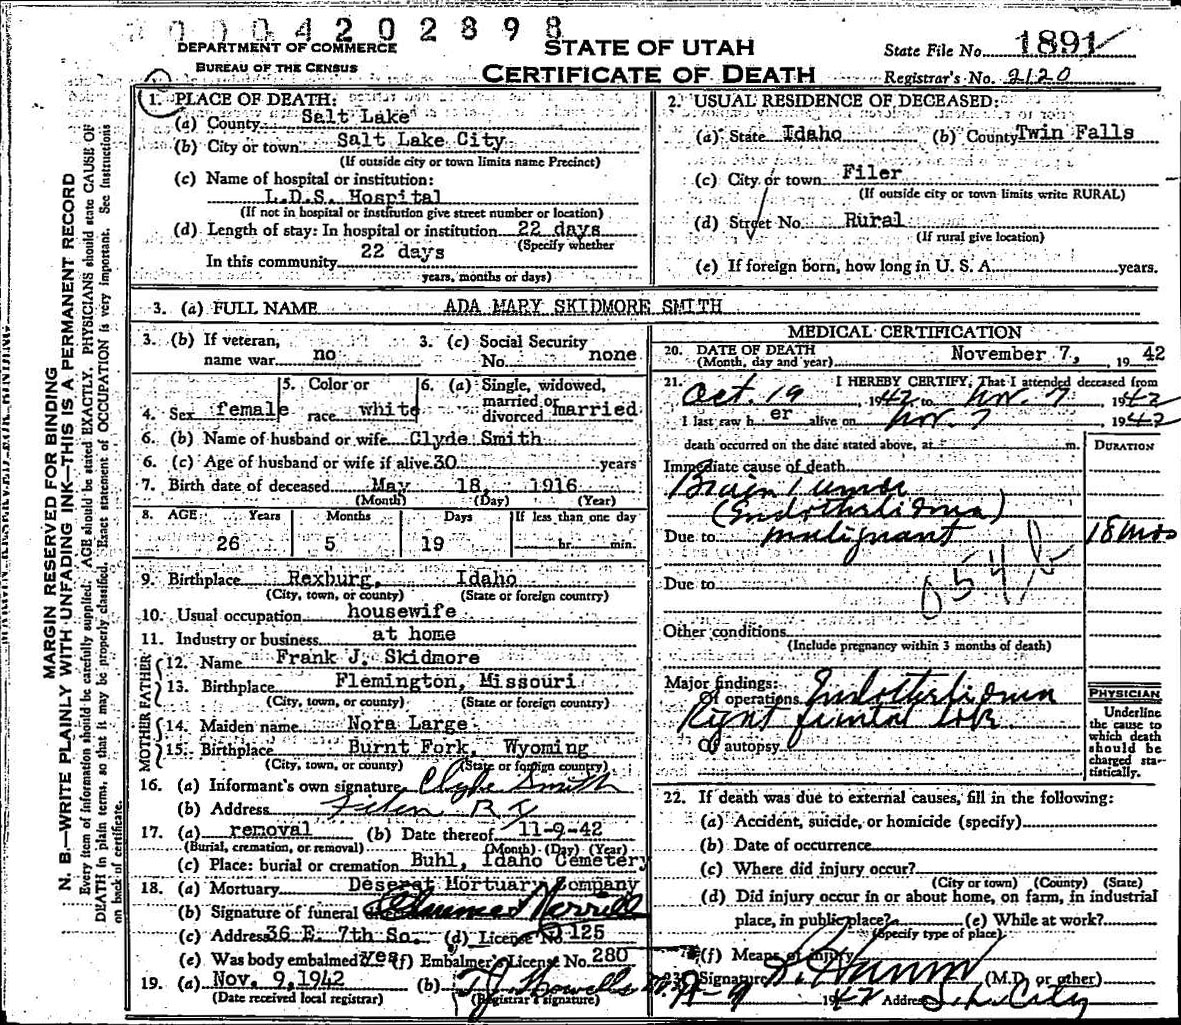 0004202898
DEPARTMENT OF COMMERCE
BUREAU OF THE CENSUS
STATE OF UTAH
CERTIFICATE OF DEATH
State File No. 1891
Registrar's No. 2120
MARGIN RESERVED FOR BINDING
N. B.—WRITE PLAINLY WITH UNFADING INK—THIS IS A PERMANENT RECORD
Every item of information should be carefully supplied. AGE should be stated EXACTLY. PHYSICIANS should state CAUSE OF
DEATH in plain terms, so that it may be properly classified. Exact statement of OCCUPATION is very important. See Instructions
on back of certificate.
1. PLACE OF DEATH:
(a) County Salt Lake
(b) City or town Salt Lake City
(If outside city or town limits name Precinct)
(c) Name of hospital or institution:
L.D.S. Hospital
(If not in hospital or institution give street number or location)
(d) Length of stay: In hospital or institution 22 days
(Specify whether
In this community 22 days
years, months or days)
2. USUAL RESIDENCE OF DECEASED:
(a) State Idaho (b) County Twin Falls
(c) City or town Filer
(If outside city or town limits write RURAL)
(d) Street No. Rural
(If rural give location)
(e) If foreign born, how long in U. S. A. years.
3. (a) FULL NAME ADA MARY SKIDMORE SMITH
3. (b) If veteran, name war no 3. (c) Social Security No. none
4. Sex female 5. Color or race white 6. (a) Single, widowed, married or divorced married
6. (b) Name of husband or wife Clyde Smith
6. (c) Age of husband or wife if alive 30 years
7. Birth date of deceased May 18, 1916
(Month) (Day) (Year)
8. AGE Years Months Days If less than one day
26 5 19 hr. min.
9. Birthplace Rexburg, Idaho
(City, town, or county) (State or foreign country)
10. Usual occupation housewife
11. Industry or business at home
FATHER
12. Name Frank J. Skidmore
13. Birthplace Flemington, Missouri
(City, town, or county) (State or foreign country)
MOTHER
14. Maiden name Nora Large
15. Birthplace Burnt Fork, Wyoming
(City, town, or county) (State or foreign country)
16. (a) Informant's own signature Clyde Smith
(b) Address Filer R 1
17. (a) removal (b) Date thereof 11-9-42
(Burial, cremation, or removal) (Month) (Day) (Year)
(c) Place: burial or cremation Buhl, Idaho Cemetery
18. (a) Mortuary Deseret Mortuary Company
(b) Signature of funeral Merrill
(c) Address 36 E. 7th So. (d) License No. 125
(e) Was body embalmed? yes (f) Embalmer's License No. 280
19. (a) Nov. 9, 1942 (b) T.J. Howells
(Date received local registrar) (Registrar's signature)
MEDICAL CERTIFICATION
20. DATE OF DEATH November 7, 1942
(Month, day and year)
21. I HEREBY CERTIFY, That I attended deceased from
Oct. 19, 1942 to Nov. 7 1942
I last saw her alive on Nov. 7 1942
death occurred on the date stated above, at m. DURATION
Immediate cause of death
Brain Tumor
(Endothelioma)
Due to malignant 18 mos
Due to 054
Other conditions
(Include pregnancy within 3 months of death)
Major findings:
Of operations Endothelioma
Right frontal lobe
Of autopsy
PHYSICIAN
Underline
the cause to
which death
should be
charged sta-
tistically.
22. If death was due to external causes, fill in the following:
(a) Accident, suicide, or homicide (specify)
(b) Date of occurrence
(c) Where did injury occur?
(City or town) (County) (State)
(d) Did injury occur in or about home, on farm, in industrial
place, in public place? (e) While at work?
(Specify type of place)
(f) Means of injury
23. Signature (M.D. or other)
1942 Address